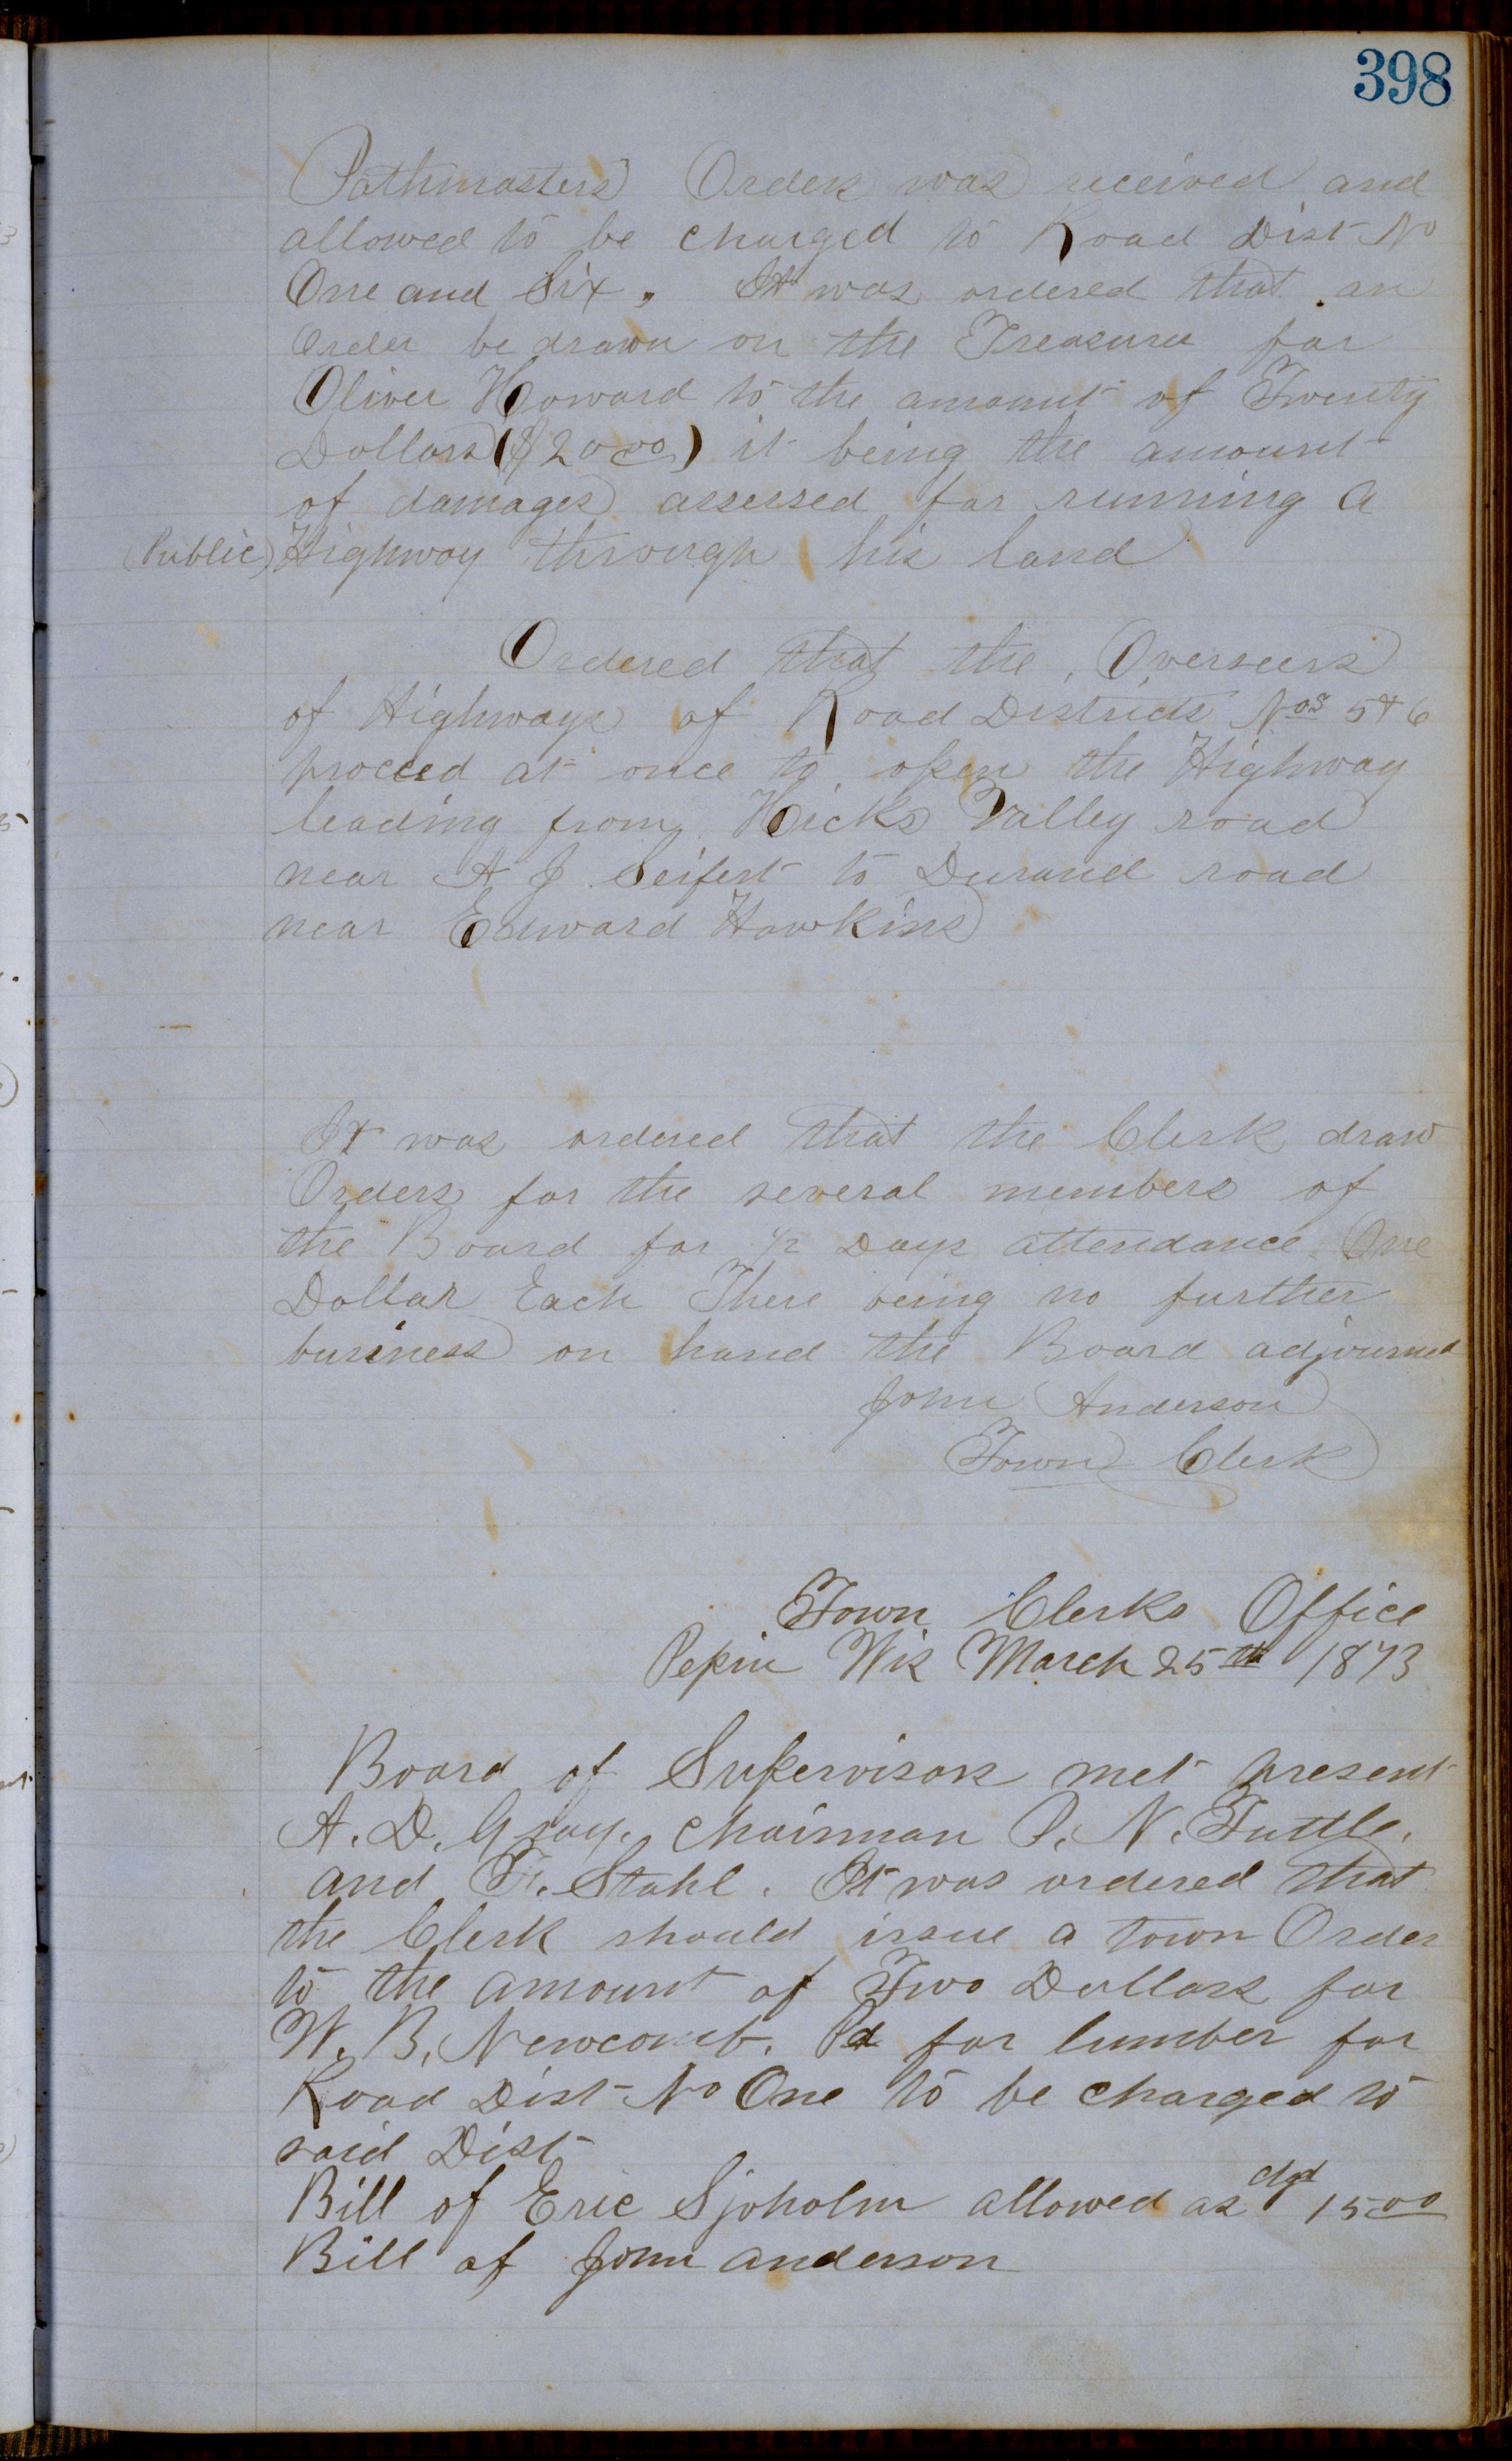 398
Pathmasters Orders was received and
allowed to be charged to Road Dist No
One and Six. It was ordered that an
Order be drawn on the Treasurer for
Oliver Howard to the amount of Twenty
Dollars ($20.00) it being the amount
of damages assessed for running a
(Public) Highway through his land
Ordered that the Overseers
of Highways of Road Districts Nos 5 & 6
proceed at once to open the Highway
leading from Hicks Valley road
near A J Seifert to Durand road
near Edward Hawkins
It was ordered that the Clerk draw
Orders for the several members of
the Board for 1/2 Days attendance One
Dollar Each There being no further
business on hand the Board adjourned
John Anderson
Town Clerk
Town Clerks Office
Pepin Wis March 25th 1873
Board of Supervisors met present
A. D. Gray. Chairman P. N. Tuttle.
and F. Stahl. It was ordered that
the Clerk should issue a town Order
to the amount of Two Dollars for
W. B. Newcomb. Pd for lumber for
Road Dist No One to be charged to
said Dist
Bill of Eric Sjoholm allowed as chgd 15 00
Bill of John Anderson